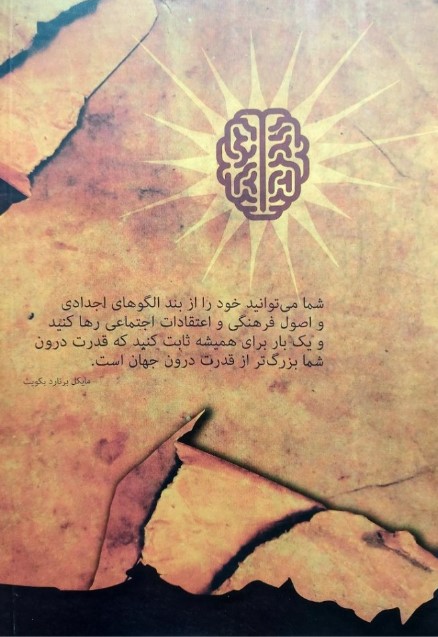 شما می‌توانید خود را از بند الگوهای اجدادی
و اصول فرهنگی و اعتقادات اجتماعی رها کنید
و یک بار برای همیشه ثابت کنید که قدرت درون
شما بزرگ‌تر از قدرت درون جهان است.
مایکل برنارد بکویث